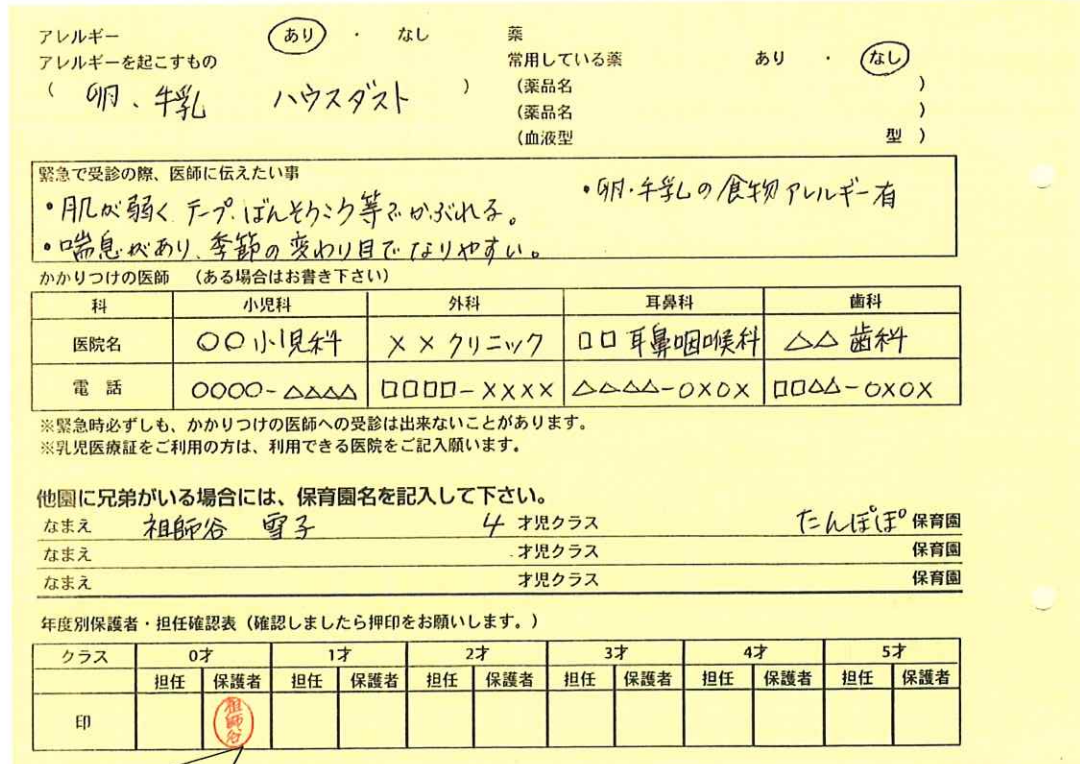 アレルギー あり ・ なし
アレルギーを起こすもの
( 卵、牛乳 ハウスダスト )
薬
常用している薬 あり ・ なし
(薬品名 )
(薬品名 )
(血液型 型 )
緊急で受診の際、医師に伝えたい事
・肌が弱く テープ、ばんそうこう等でかぶれる。
・喘息があり、季節の変わり目でなりやすい。
・卵・牛乳の食物アレルギー有
かかりつけの医師 (ある場合はお書き下さい)
科 小児科 外科 耳鼻科 歯科
医院名 〇〇小児科 ××クリニック □□耳鼻咽喉科 △△歯科
電話 〇〇〇〇-△△△△ □□□□-×××× △△△△-〇×〇× □□△△-〇×〇×
※緊急時必ずしも、かかりつけの医師への受診は出来ないことがあります。
※乳児医療証をご利用の方は、利用できる医院をご記入願います。
他園に兄弟がいる場合には、保育園名を記入して下さい。
なまえ 祖師谷 雪子 4 才児クラス たんぽぽ 保育園
なまえ 才児クラス 保育園
なまえ 才児クラス 保育園
年度別保護者・担任確認表(確認しましたら押印をお願いします。)
クラス 0才 1才 2才 3才 4才 5才
担任 保護者 担任 保護者 担任 保護者 担任 保護者 担任 保護者 担任 保護者
印 祖師谷